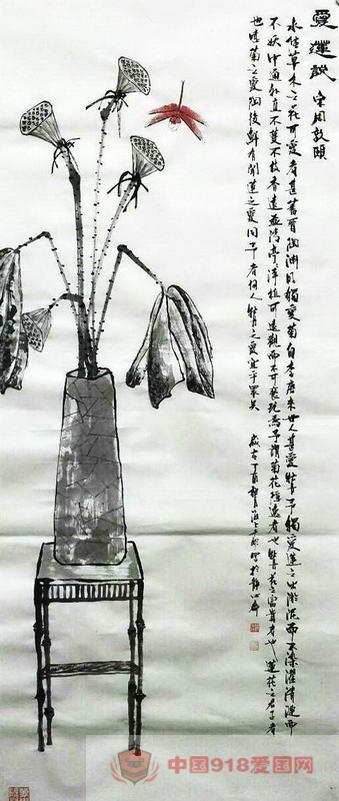 愛蓮說 宋周敦頤
水陸草木之花可愛者甚蕃晉陶淵明獨愛菊自李唐來世人甚愛牡丹予獨愛蓮之出淤泥而不染濯清漣而
不妖中通外直不蔓不枝香遠益清亭亭淨植可遠觀而不可褻玩焉予謂菊花隱逸者也牡丹花之富貴者也蓮花之君子者
也噫菊之愛陶後鮮有聞蓮之愛同予者何人牡丹之愛宜乎眾矣
歲在丁酉
中国918爱国网